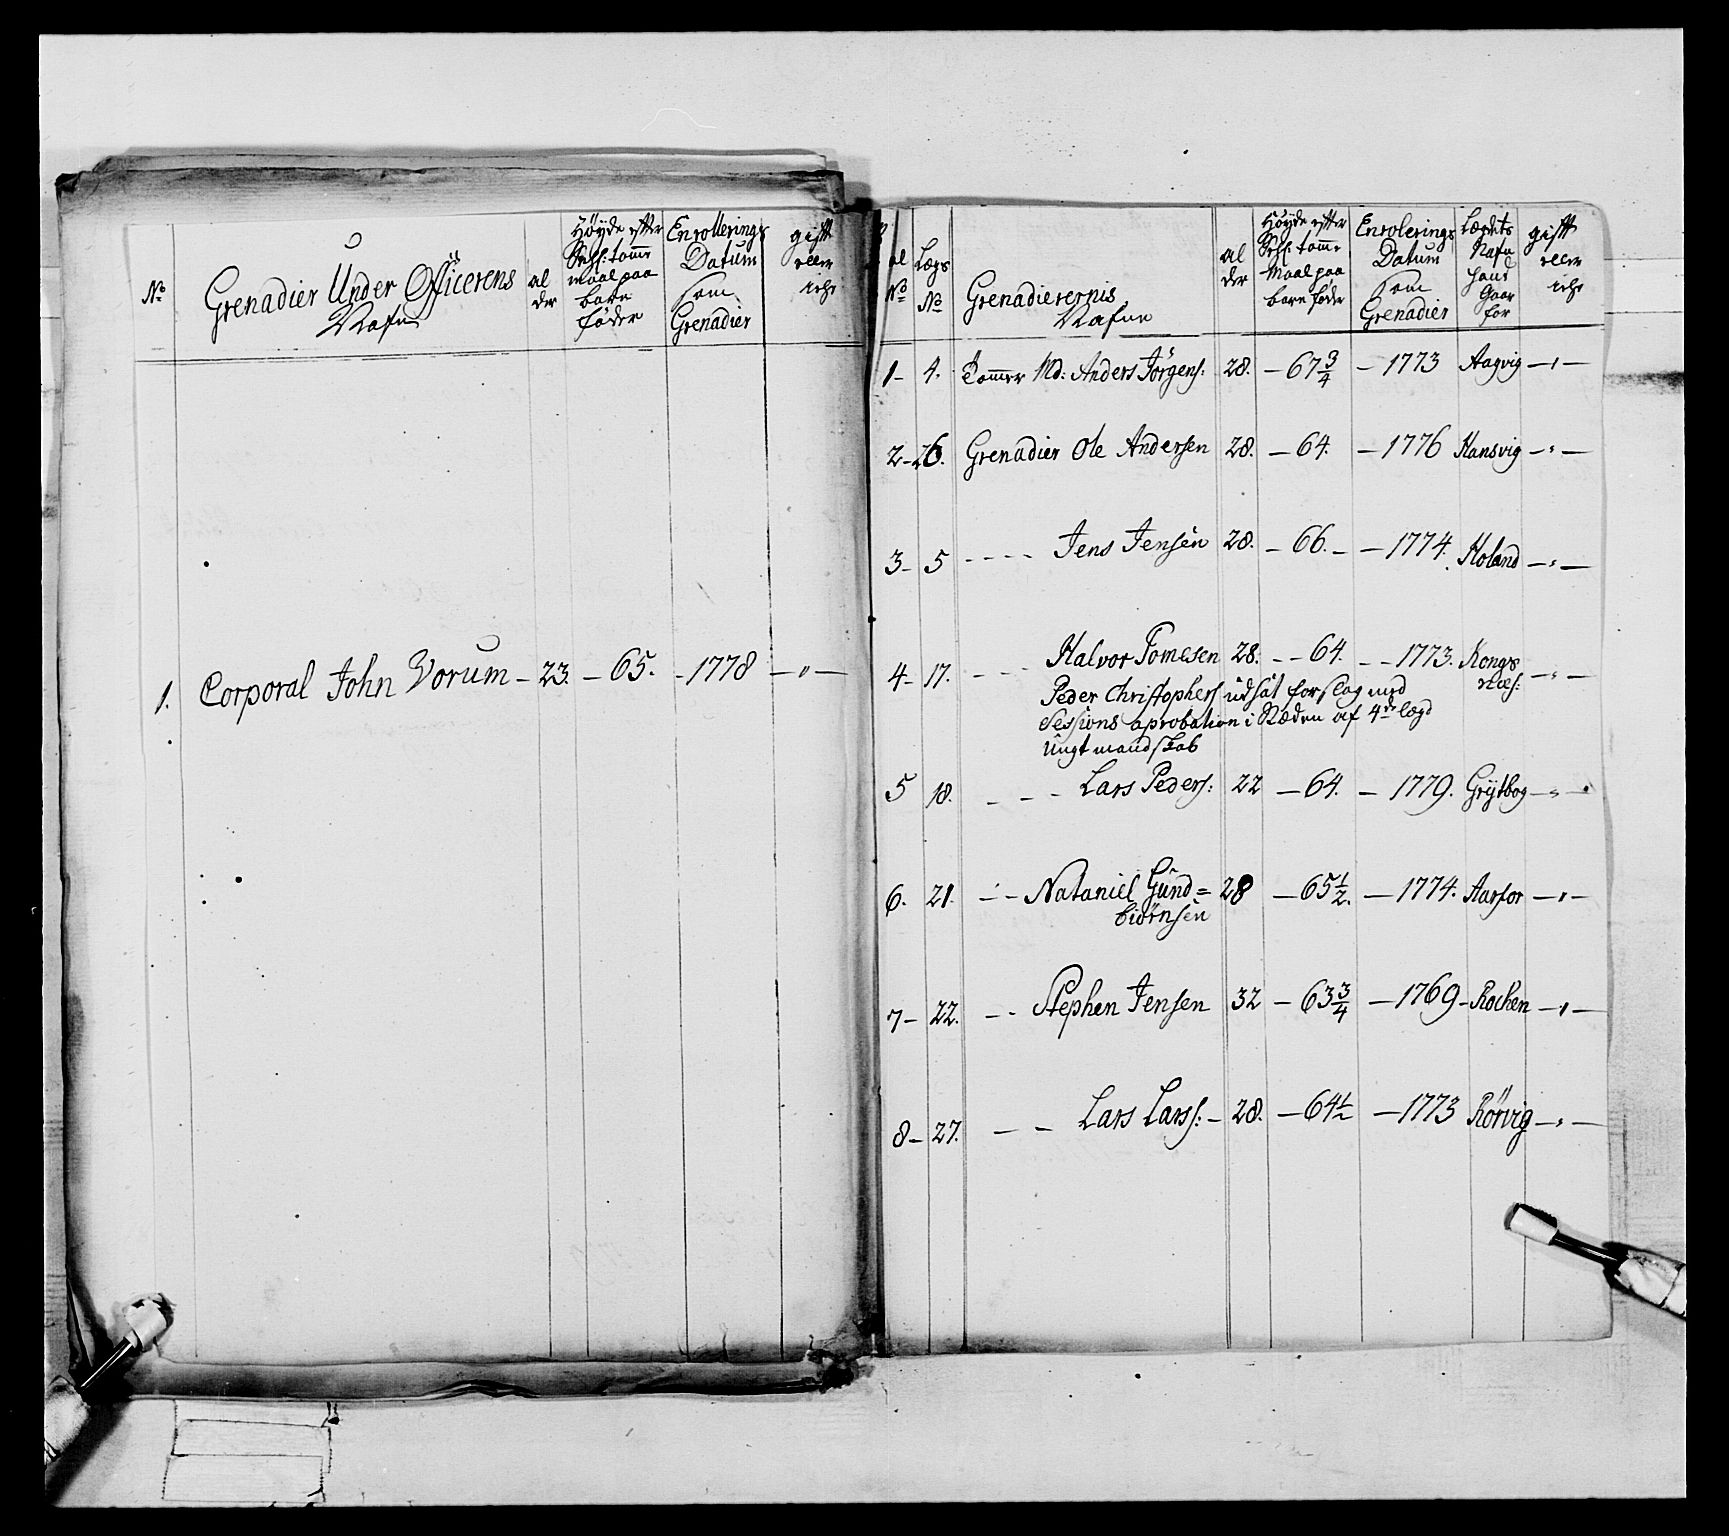 No
Grenadier Under Officerens
Nafn
al
der
Høyde efter
Sehl: tomme
maal paa
bare
føder
Enrollerings
Datum
som
Grenadier
gift
eller
icke
1. Corporal John Vorum - 23. - 65. - 1778 - " -
al
No
Lægs
No
Grenaderernis
Nafne
al
der
Høyde efter
Sehl: tomme
Maal paa
bare føder
Enrolerings
Datum
som
Grenadier
Lægdets
Nafn
hand
Gaar
for
gift
eller
icke
1 - 4. Tommer Md: Anders Jörgens: 28. - 67 3/4 - 1773 Aagvig - " -
2 - 26. Grenadier Ole Andersen 28. - 64. - 1776 Hansvig - " -
3 - 5 - - - - Jens Jensen 28. - 66. - - 1774. Holand - " -
4 - 17. - - - Halvor Tomesen 28. - - 64. - - 1773. Kongs
næs: - " -
Peder Christophers: udsat forslag med
Sessions aprobation i Ræden af 4de lægd
ungt mandskab
5 18. - - - Lars Peders: 22 - 64. - 1779. Grytbog - " -
6. 21. - - Nataniel Gund=
biörnsen 28 - 65 1/2. - 1774. Aarfor - " -
7 - 22. - - Stephen Jensen 32 - 63 3/4 - 1769 - Rochen - " -
8 - 27. - - Lars Larss: - 28. - 64 1/2 - 1773 Rörvig - " -